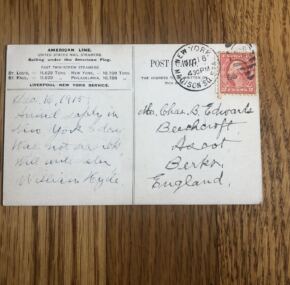 AMERICAN LINE.
UNITED STATES MAIL STEAMERS.
Sailing under the American Flag.
FAST TWIN-SCREW STEAMERS
St. Louis, - 11,629 Tons New York, - 10,798 Tons
St. Paul, - 11,629 " Philadelphia, 10,786 "
LIVERPOOL NEW YORK SERVICE.
Dec. 16, 1915
Arrived safely in
New York today
Was not sea sick
Will write
William Hyde
POST
NEW YORK
4 30 PM
MADISON SQ. STA.
2 CENTS 2
THE ADDRESS
Mr. Chas. B. Edwards
Beechcroft
Ascot
Berks.
England.